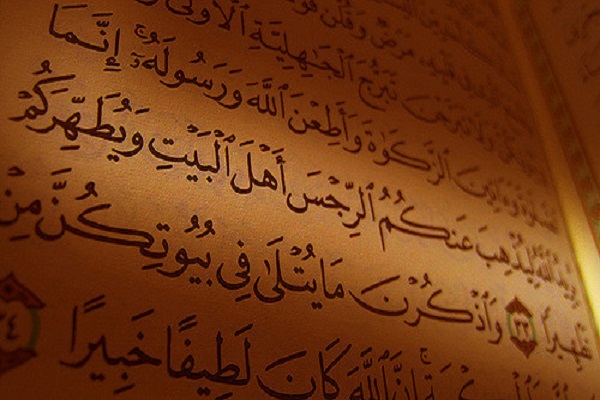 مَرَضٌ وَقُلْنَ
تَبَرُّجَ ٱلْجَٰهِلِيَّةِ ٱلْأُولَىٰ
وَءَاتِينَ ٱلزَّكَوٰةَ وَأَطِعْنَ ٱللَّهَ وَرَسُولَهُۥٓ ۚ إِنَّمَا
يُرِيدُ ٱللَّهُ لِيُذْهِبَ عَنكُمُ ٱلرِّجْسَ أَهْلَ ٱلْبَيْتِ وَيُطَهِّرَكُمْ
تَطْهِيرًا ٣٣ وَٱذْكُرْنَ مَا يُتْلَىٰ فِى بُيُوتِكُنَّ مِنْ
إِنَّ ٱللَّهَ كَانَ لَطِيفًا خَبِيرًا ٣٤